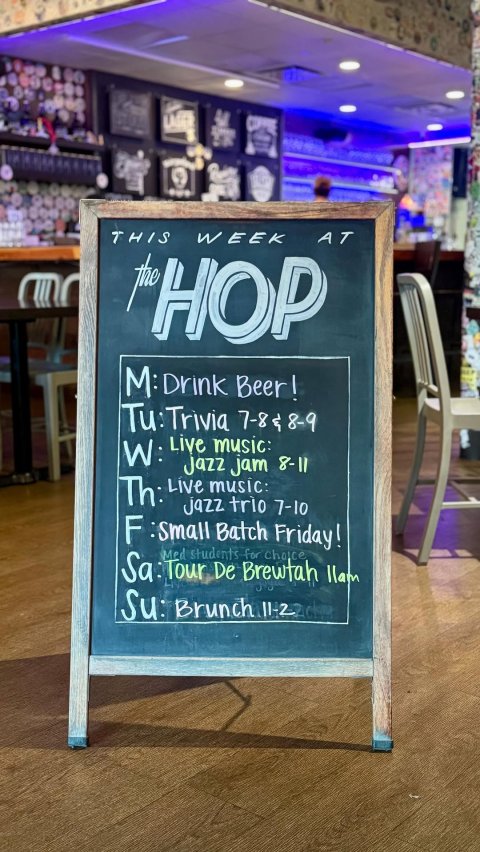 THIS WEEK AT
the HOP
M: Drink Beer!
Tu: Trivia 7-8 & 8-9
W: Live music:
jazz jam 8-11
Th: Live music:
jazz trio 7-10
F: Small Batch Friday!
Med students for choice
Sa: Tour De Brewtah 11am
Su: Brunch 11-2